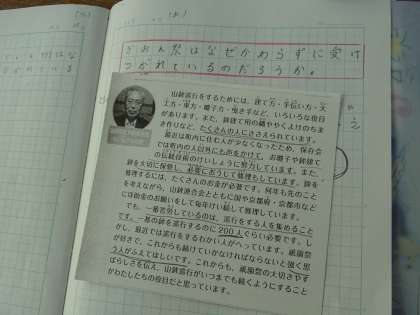 ぎおん祭はなぜかわらずに受け
つがれているのだろうか。
山鉾巡行をするためには、建て方・手伝い方・大
工方・車方・囃子方・曳き手など、いろいろな役目
があります。また、鉾建て用の縄ややくよけのちま
き作りなど、たくさんの人にささえられています。
最近は町内に住む人が少なくなったため、保存会
では町内の人以外にも声をかけて、お囃子や鉾建て
の伝統技術のけいしょうに努力しています。また、
鉾を大切に保管し、必要におうじて修理もしています。鉾を
修理するには、たくさんのお金が必要です。何年も先のこと
を考えながら、山鉾連合会とともに国や京都府・京都市など
には助金のお願いをして毎年けい続して修理しています。
でも、一番苦労しているのは、巡行をする人を集めること
です。一基の鉾を巡行するのに200人ぐらい必要です。し
かし、最近では巡行をするわかい人がへっています。祇園祭
が好きで、これからも続けていかなければならないと強く思
う人がふえてほしいです。これからも、祇園祭の大切さやす
ばらしさを伝え、山鉾巡行がいつまでも続くようにすること
がわたしたちの役目だと思っています。
え